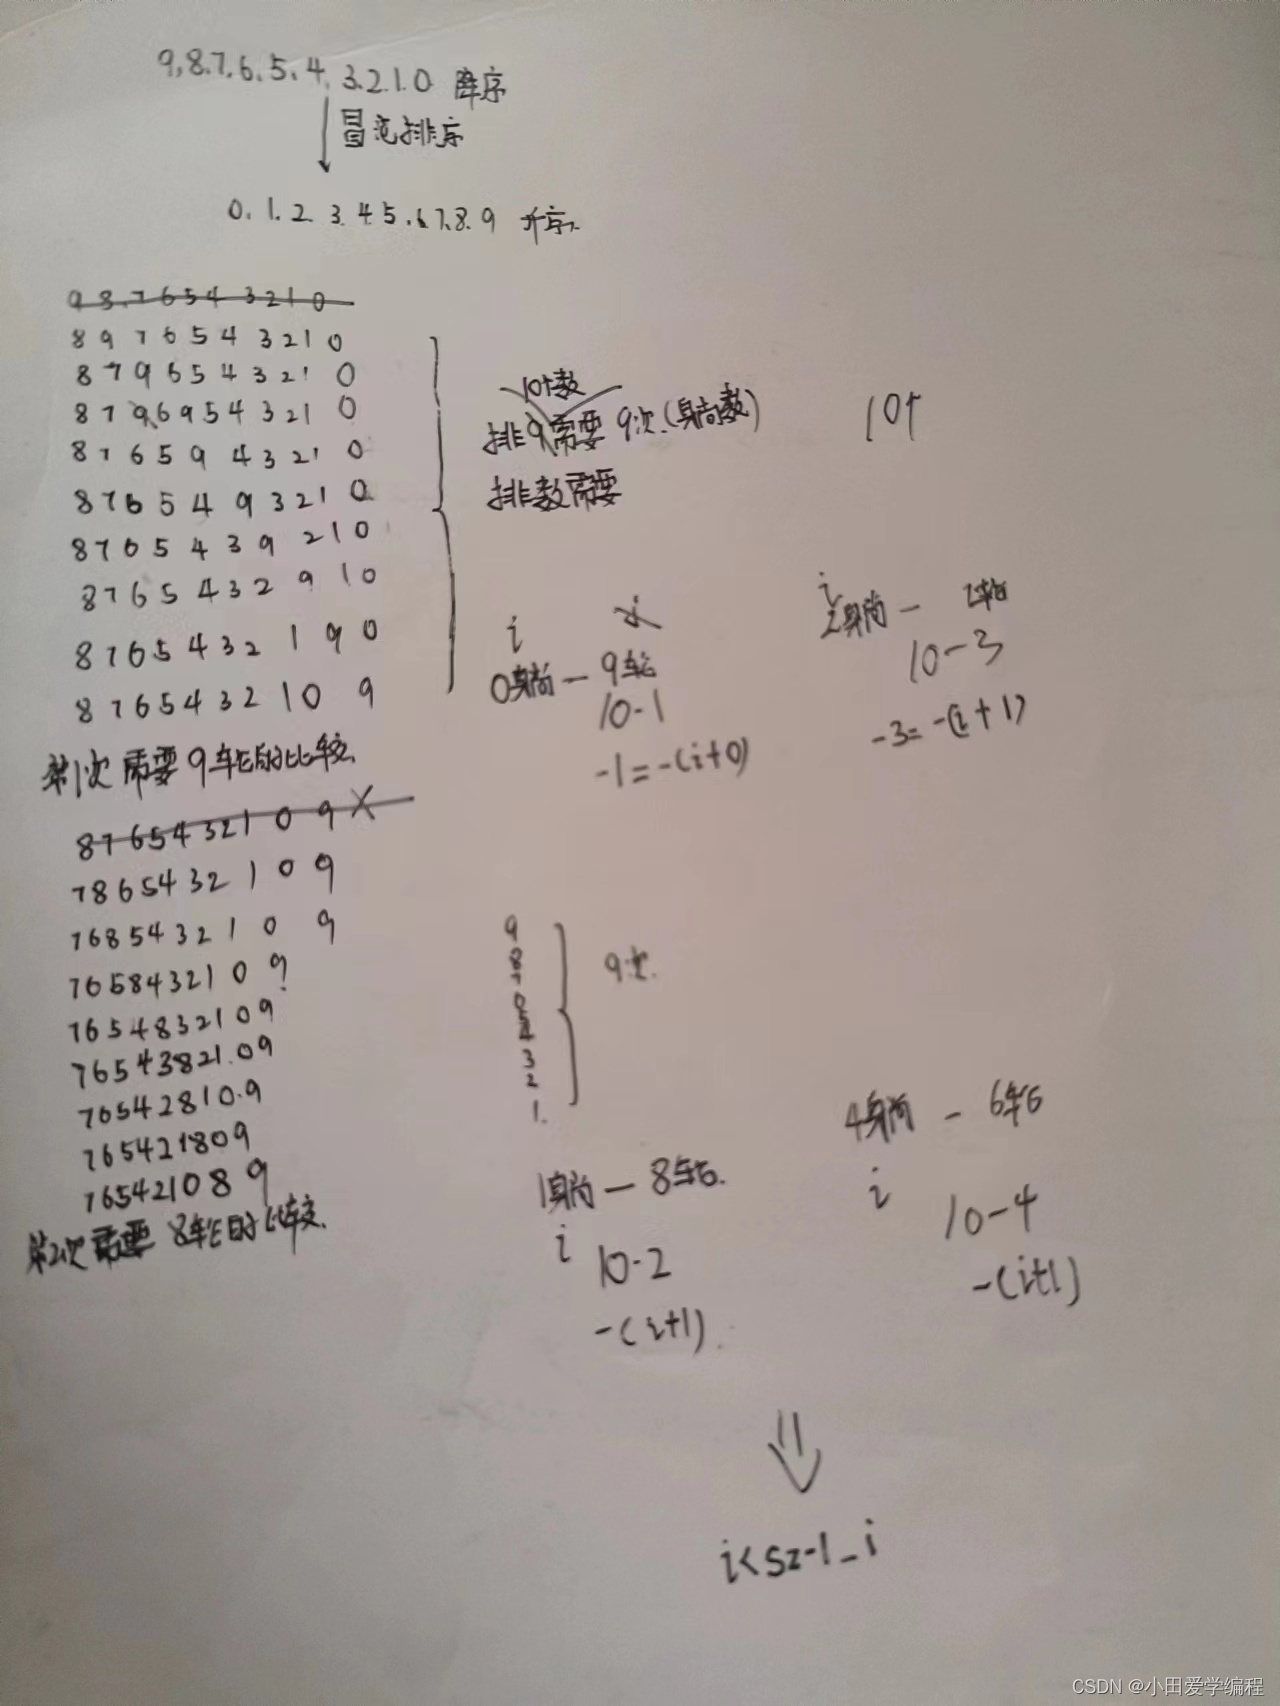 9.8.7.6.5.4.3.2.1.0 降序
冒泡排序
0.1.2 3.4.5.6.7.8.9 升序
9 8.7 6 5 4 3 2 1 0
8 9 7 6 5 4 3 2 1 0
8 7 9 6 5 4 3 2 1 0
8 7 9 6 9 5 4 3 2 1 0
8 7 6 5 9 4 3 2 1 0
8 7 6 5 4 9 3 2 1 0
8 7 6 5 4 3 9 2 1 0
8 7 6 5 4 3 2 9 1 0
8 7 6 5 4 3 2 1 9 0
8 7 6 5 4 3 2 1 0 9
第1次需要9轮的比较
10个数
排9需要9次(躺数)
排数需要
10个
i
0躺 — 9轮
10-1
-1=-(i+0)
i
2躺 —
10-3
-3=-(i+1)
8 7 6 5 4 3 2 1 0 9 X
7 8 6 5 4 3 2 1 0 9
7 6 8 5 4 3 2 1 0 9
7 6 5 8 4 3 2 1 0 9
7 6 5 4 8 3 2 1 0 9
7 6 5 4 3 8 2 1.0 9
7 6 5 4 2 8 1 0.9
7 6 5 4 2 1 8 0 9
7 6 5 4 2 1 0 8 9
第2次需要8轮的比较.
9
8
7
3
2
1.
9次.
1躺 — 8轮.
i
10-2
-(i+1).
4躺 — 6轮
i
10-4
-(i+1)
i<sz-1-i
CSDN @小田爱学编程